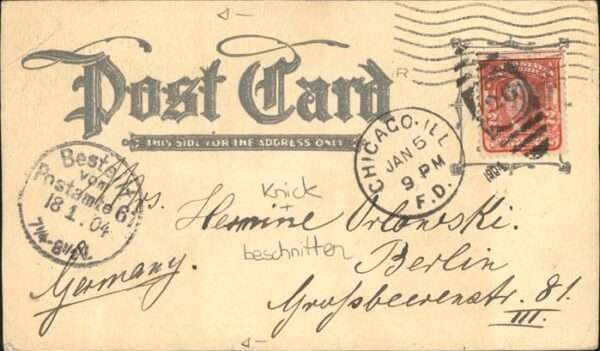 Post Card
THIS SIDE FOR THE ADDRESS ONLY
R
CHICAGO, ILL
JAN 5
9 PM
F.D.
1904
Bestellt
vom
Postamte 6
18 1. 04
7¼-8½
Mrs. Hermine Orlowski.
Knick
+
beschnitten
Berlin
Germany.
Großbeerenstr. 81.
III.